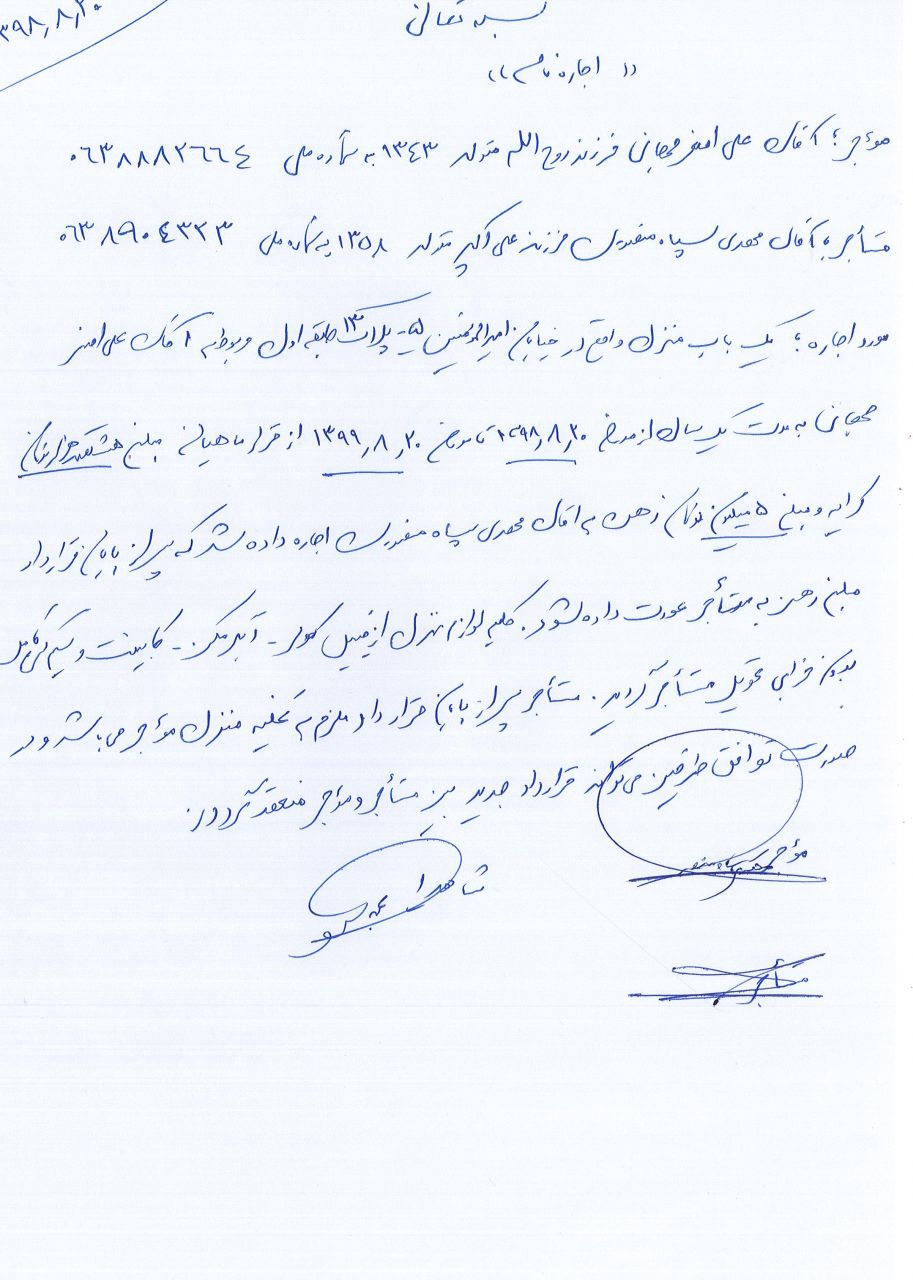 ۱۳۹۸٫۸٫۲۰
بسمه تعالی
(( اجاره نامه ))
مؤجر : آقای علی اصغر فرزند روح الله متولد ۱۳٤۳ به شماره ملی ۰٦۳۸۸۸۲٦٦٤
مستأجر : آقای مهدی سپاه منصور فرزند علی اکبر متولد ۱۳۵۸ به شماره ملی ۰٦۳۸۹۰٤۳۲۳
مورد اجاره : یک باب منزل واقع در خیابان امیرالمومنین ۵ - پلاک ۱۳ طبقه اول مربوط به آقای علی اصغر
به مدت یک سال از مورخ ۱۳۹۸٫۸٫۲۰ تا مورخ ۱۳۹۹٫۸٫۲۰ از قرار ماهیانه مبلغ هشتصد هزار تومان
کرایه و مبلغ ۵ میلیون تومان رهن به اقای مهدی سپاه منصور اجاره داده شد که پس از پایان قرارداد
مبلغ رهن به مستأجر عودت داده شود. کلیه لوازم منزل از قبیل کولر - آبگرمکن - کابینت و سیم کشی کامل
بدون خرابی تحویل مستأجر گردید. مستأجر پس از پایان قرار داد ملزم به تخلیه منزل مؤجر می باشد و در
صورت توافق طرفین می تواند قرارداد جدید بین مستأجر و مؤجر منعقد گردد.
مؤجر
شاهد
مستأجر